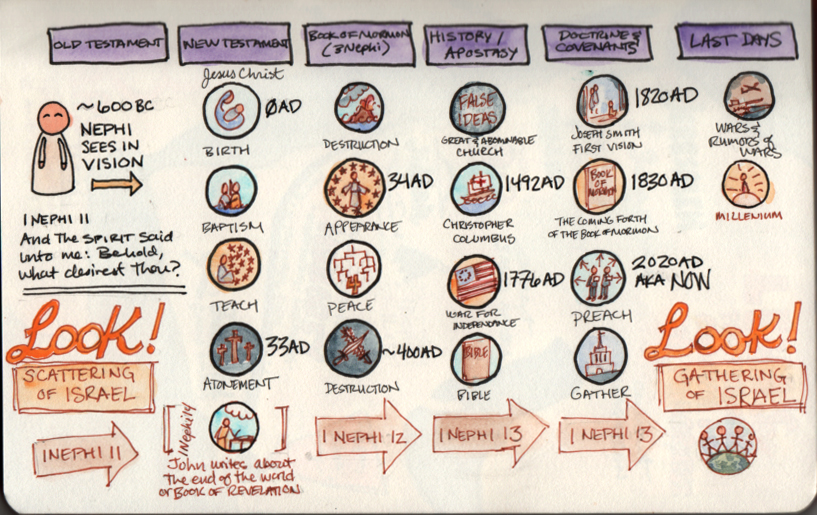 OLD TESTAMENT
~600BC
NEPHI
SEES IN
VISION
1 NEPHI 11
And The SPIRIT said
unto me: Behold,
what desirest thou?
Look!
SCATTERING
OF ISRAEL
1 NEPHI 11
NEW TESTAMENT
Jesus Christ
0AD
BIRTH
BAPTISM
TEACH
33AD
ATONEMENT
1 Nephi 14
John writes about
the end of the world
or BOOK OF REVELATION
BOOK OF MORMON
(3 Nephi)
DESTRUCTION
34AD
APPEARANCE
4
PEACE
~400AD
DESTRUCTION
1 NEPHI 12
HISTORY/
APOSTASY
FALSE
IDEAS
GREAT & ABOMINABLE
CHURCH
1492AD
CHRISTOPHER
COLUMBUS
1776AD
WAR FOR
INDEPENDANCE
BIBLE
BIBLE
1 NEPHI 13
DOCTRINE &
COVENANTS
1820AD
JOSEPH SMITH
FIRST VISION
BOOK
OF
MORMON
1830AD
THE COMING FORTH
OF THE BOOK OF MORMON
2020AD
AKA NOW
PREACH
GATHER
1 NEPHI 13
LAST DAYS
WARS &
RUMORS of
WARS
MILLENIUM
Look!
GATHERING
OF ISRAEL